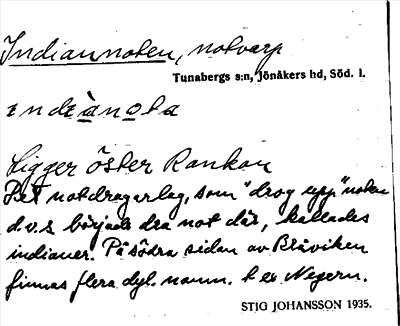 Indiannoten, notvarp
Tunabergs s:n, Jönåkers hd, Söd. l.
indiànota
Ligger öster Rankan
Det notdragarlag, som "drog upp" noten
d.v.s. började dra not där, kallades
indianer. På södra sidan av Bråviken
finnas flera dyl. namn. t ex Negern.
STIG JOHANSSON 1935.